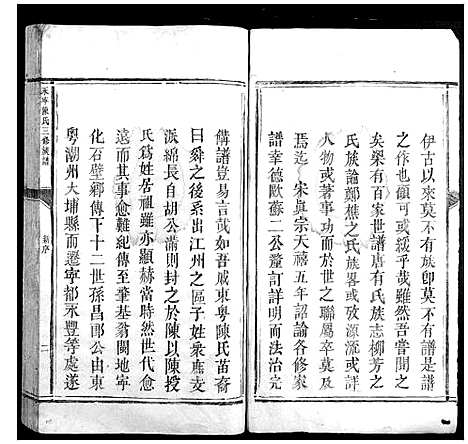 伊古以來莫不有族卽莫不有譜是譜
之作也顧可或緩乎哉雖然吾嘗聞之
矣槩有百家世譜唐有氏族志柳芳之
氏族論鄭樵之氏族畧或攷源流或詳
人物或著事功而於世之聯屬卒莫及
焉迄宋眞宗天禧五年詔諭各修家
譜幸德歐蘇二公釐訂詳明而法治完
備譜豈易言哉如吾戚東粵陳氏苗裔
曰舜之後系出江州之區子姓衆庶支
派綿長自胡公滿則封之於陳以陳授
氏爲姓居祖雖亦顯赫當時然世代愈
遠而其事愈難紀傳至肇基翁閩地寧
化石壁鄉傳下十二世孫昌郎公由東
粵潮州大埔縣而遷寧都永豐等處遂
永寧陳氏三修族譜
新序
二